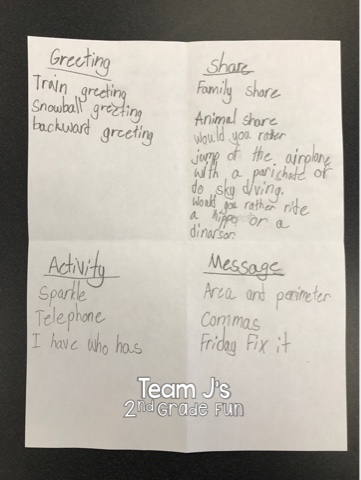 Greeting
Train greeting
Snowball greeting
backward greeting
Share
Family share
Animal share
would you rather
jump of the airplane
with a parichate or
do sky diving.
Would you rather ride
a hippo or a
dinarsor.
Activity
Sparkle
Telephone
I have who has
Message
Area and perimeter
Commas
Friday Fix it
Team J's
2nd Grade Fun